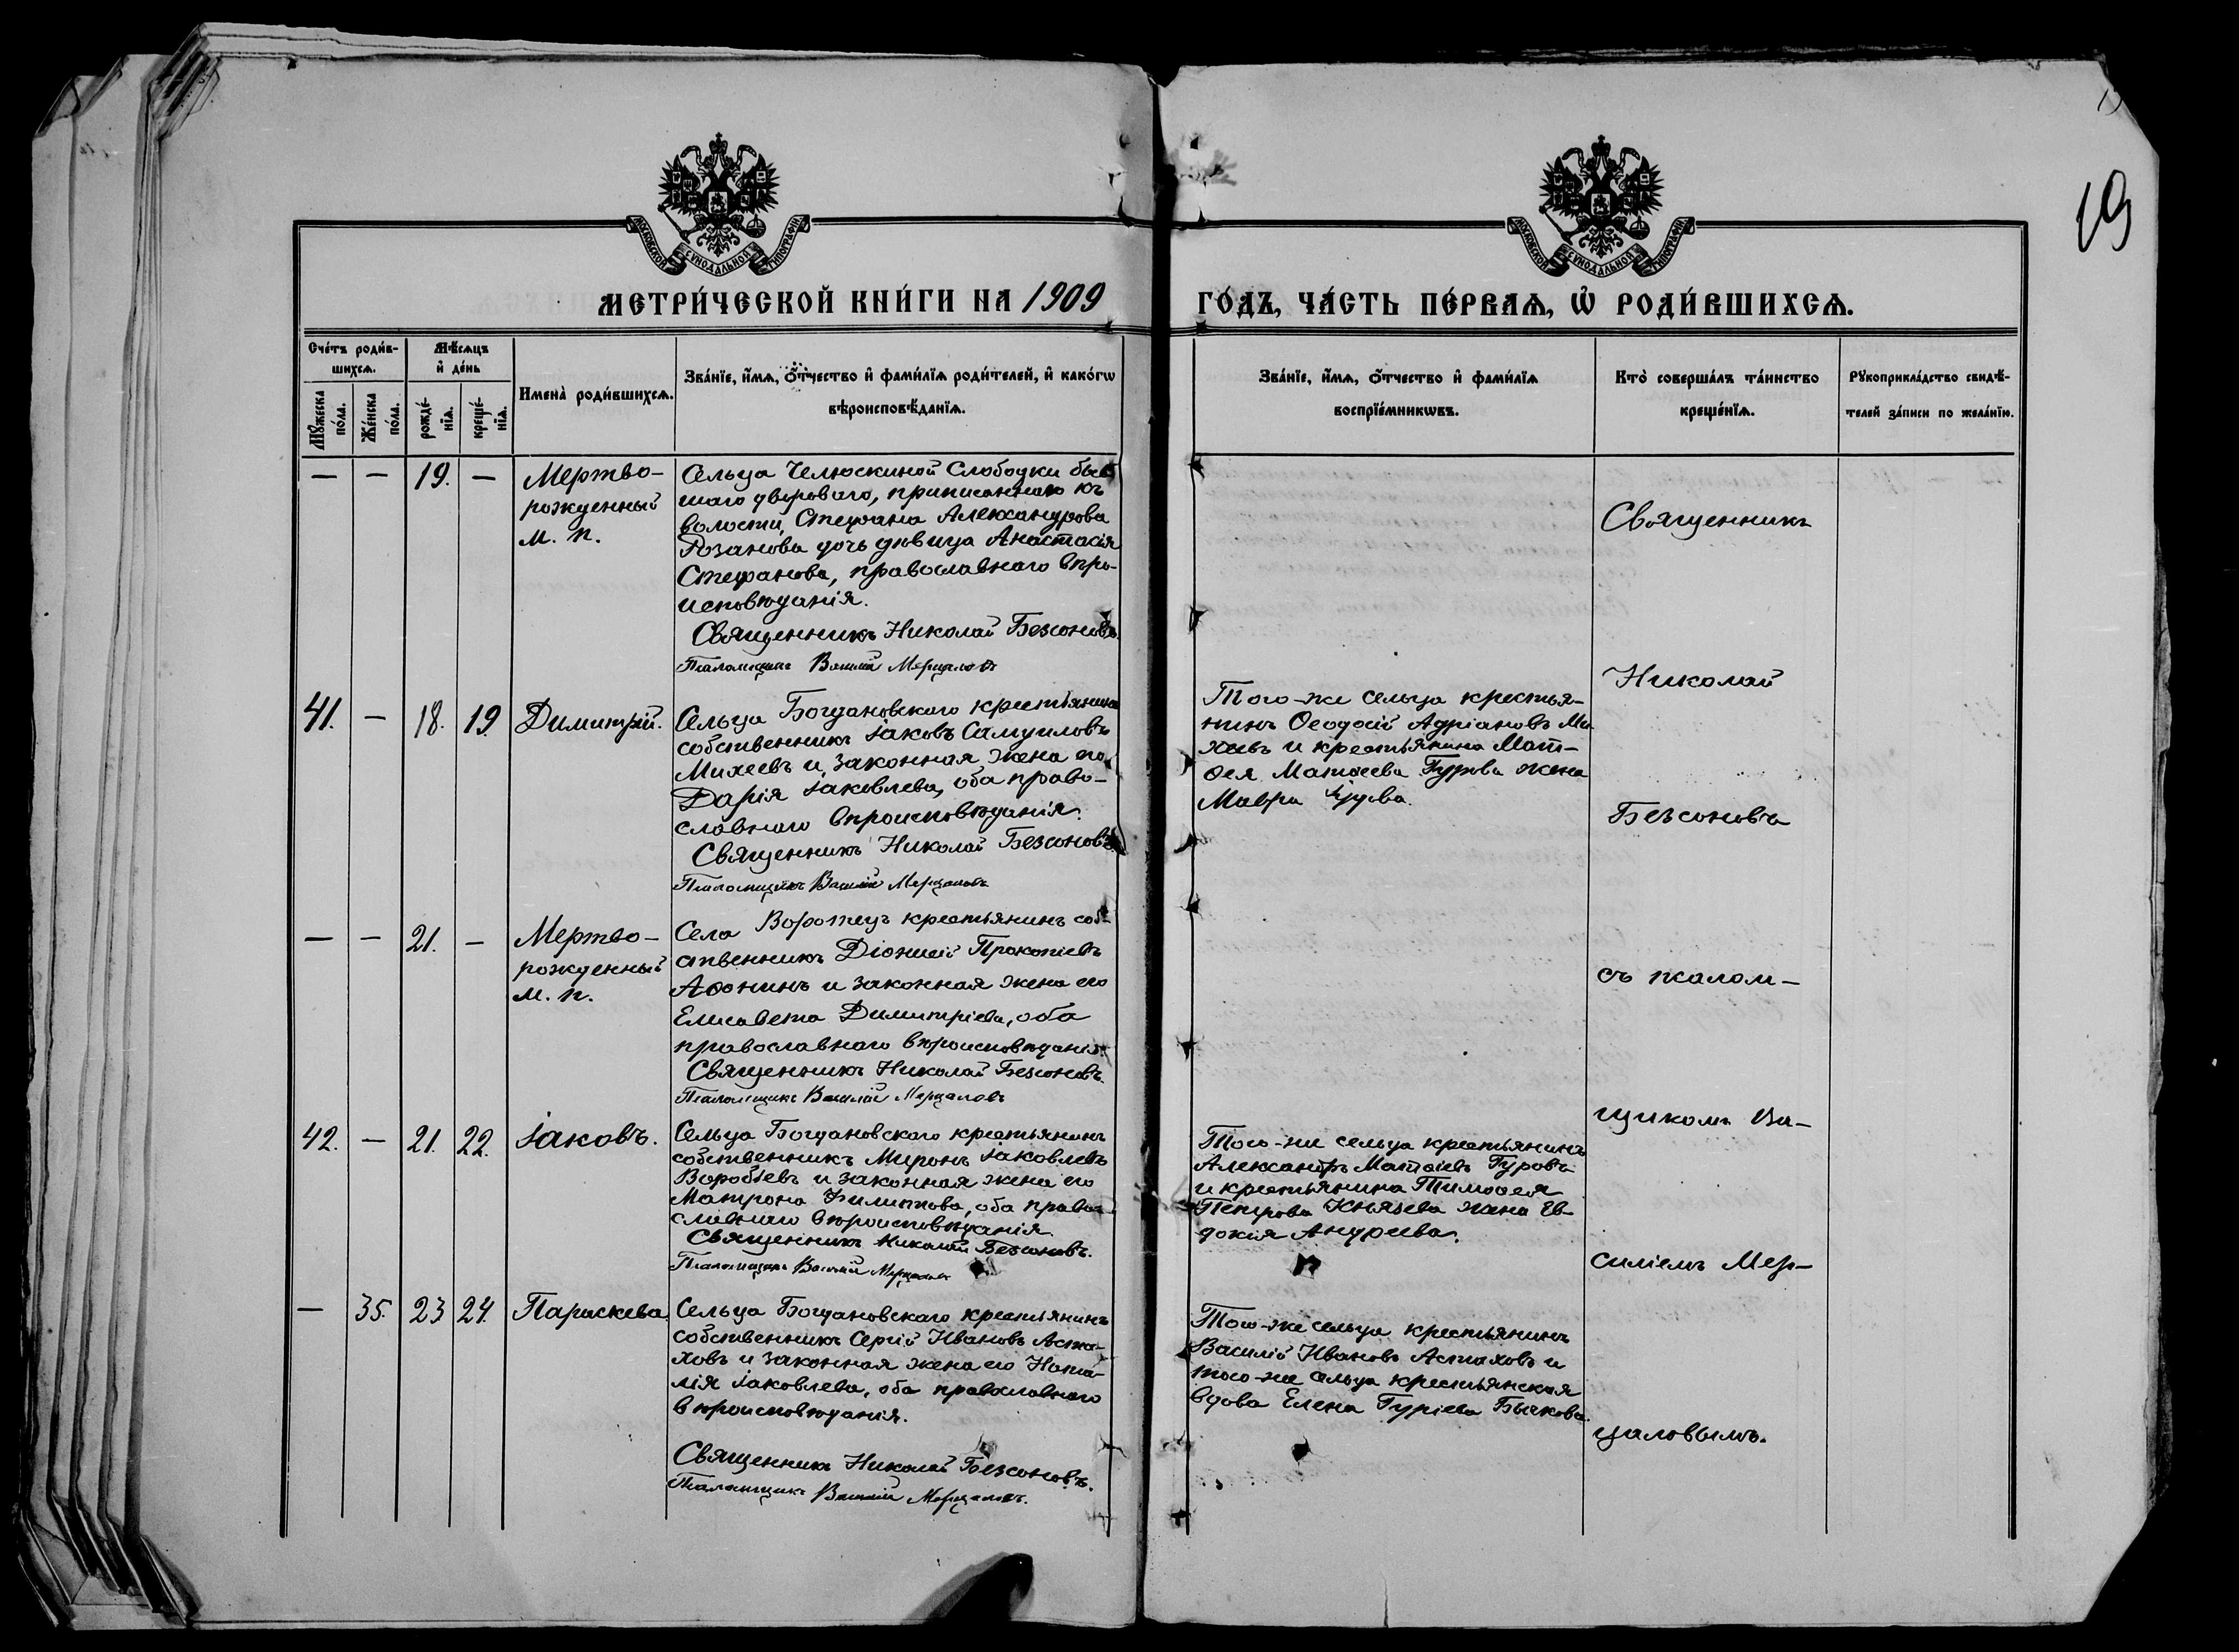 19
МОСКОВСКОЙ СѴНОДАЛЬНОЙ ТИПОГРАФІИ
МОСКОВСКОЙ СѴНОДАЛЬНОЙ ТИПОГРАФІИ
МЕТРИ́ЧЕСКОЙ КНИ́ГИ НА 1909
ГО́ДЪ, ЧА́СТЬ ПЕ́РВАѦ, Ѡ҆ РОДИ́ВШИХСѦ.
Сче́тъ роди́в-
шихсѧ.
Мꙋ́жеска по́ла.
Же́нска по́ла.
Мѣ́сѧцъ
и҆ де́нь
рожде́-
нїѧ.
креще́-
нїѧ.
Имена̀ роди́вшихсѧ.
Зва́нїе, и҆́мѧ, ѻ҆́тчество и҆ фами́лїѧ роди́телей, и҆ како́гѡ
вѣроисповѣ́данїѧ.
Зва́нїе, и҆́мѧ, ѻ҆́тчество и҆ фами́лїѧ
воспрїе́мникѡвъ.
Кто̀ соверша́лъ та́инство
креще́нїѧ.
Рꙋкоприкла́дство свидѣ́-
телей за́писи по жела́нїю.
— — 19. — Мертво-
рожденный
м. п.
Сельца Челюскиной Слободки быв
шаго двороваго, приписаннаго къ
волости, Стефана Александрова
Розанова дочь дѣвица Анастасія
Стефанова, православнаго вѣро-
исповѣданія.
Священникъ Николай Безсоновъ.
Псаломщикъ Василій Мерцаловъ
41. — 18. 19. Димитрій.
Сельца Богдановскаго крестьянинъ
собственникъ Іаковъ Самуиловъ
Михеевъ и законная жена его
Дарія Іаковлева, оба право-
славнаго вѣроисповѣданія.
Священникъ Николай Безсоновъ.
Псаломщикъ Василій Мерцаловъ
Того-же сельца крестья-
нинъ Ѳеодосій Адріановъ Ми
хеевъ и крестьянина Мат-
ѳея Матѳеева Гурова жена
Мавра
— — 21. — Мертво-
рожденный
м. п.
Села Воротецъ крестьянинъ соб-
ственникъ Діонисій Прокопіевъ
Аѳонинъ и законная жена его
Елисавета Димитріева, оба
православнаго вѣроисповѣданія.
Священникъ Николай Безсоновъ.
Псаломщикъ Василій Мерцаловъ
42. — 21. 22. Іаковъ.
Сельца Богдановскаго крестьянинъ
собственникъ Миронъ Іаковлевъ
Воробьевъ и законная жена его
Матрона Филиппова, оба право-
славнаго вѣроисповѣданія.
Священникъ Николай Безсоновъ.
Псаломщикъ Василій Мерцаловъ
Того-же сельца крестьянинъ
Александръ Матѳіевъ Гуровъ
и крестьянина Тимоѳея
Петрова Князева жена Ев-
докія Андреева.
— 35. 23 24. Параскева.
Сельца Богдановскаго крестьянинъ
собственникъ Сергій Ивановъ Аста-
ховъ и законная жена его Ната-
лія Іаковлева, оба православнаго
вѣроисповѣданія.
Священникъ Николай Безсоновъ.
Псаломщикъ Василій Мерцаловъ.
Того-же сельца крестьянинъ
Василій Ивановъ Астаховъ и
того-же сельца крестьянская
вдова Елена Гуріева Бычкова.
Священникъ
Николай
Безсоновъ
съ псалом-
щикомъ Ва-
силіемъ Мер-
цаловымъ.